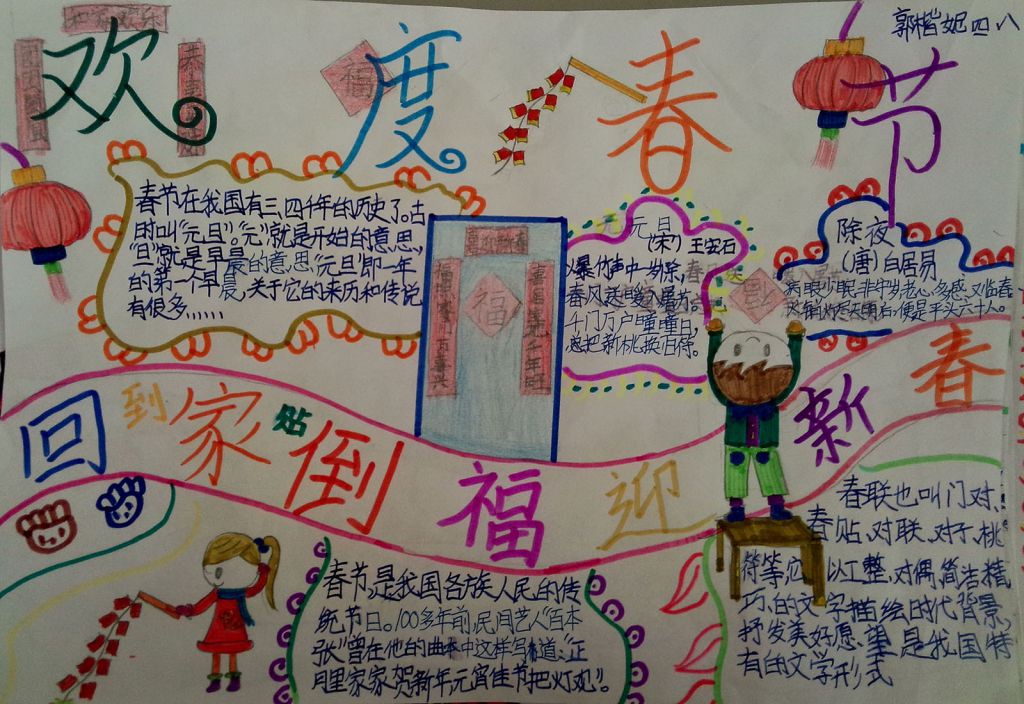 郭楷妮 四、八
欢度春节
福
春节在我国有三、四千年的历史了。古
时叫"元旦"。"元"就是开始的意思,
"旦"就是早晨的意思"元旦"即一年
的第一个早晨,关于它的来历和传说
有很多......
福
元旦
(宋)王安石
爆竹声中一岁除,
春风送暖入屠苏。
千门万户曈曈日,
总把新桃换旧符。
除夜
(唐)白居易
病眼少眠非守岁,老心多感又临春
火销灯尽天明后,便是平头六十人。
回到家贴倒福迎新春
春节,是我国各族人民的传
统节日。100多年前,民间艺人"百本
张"曾在他的曲本中这样写道:"正
月里家家贺新年元宵佳节把灯观"。
春联也叫门对、
春贴、对联、对子、桃
符等,它以工整、对偶、简洁、精
巧的文字描绘时代背景,
抒发美好愿望,是我国特
有的文学形式